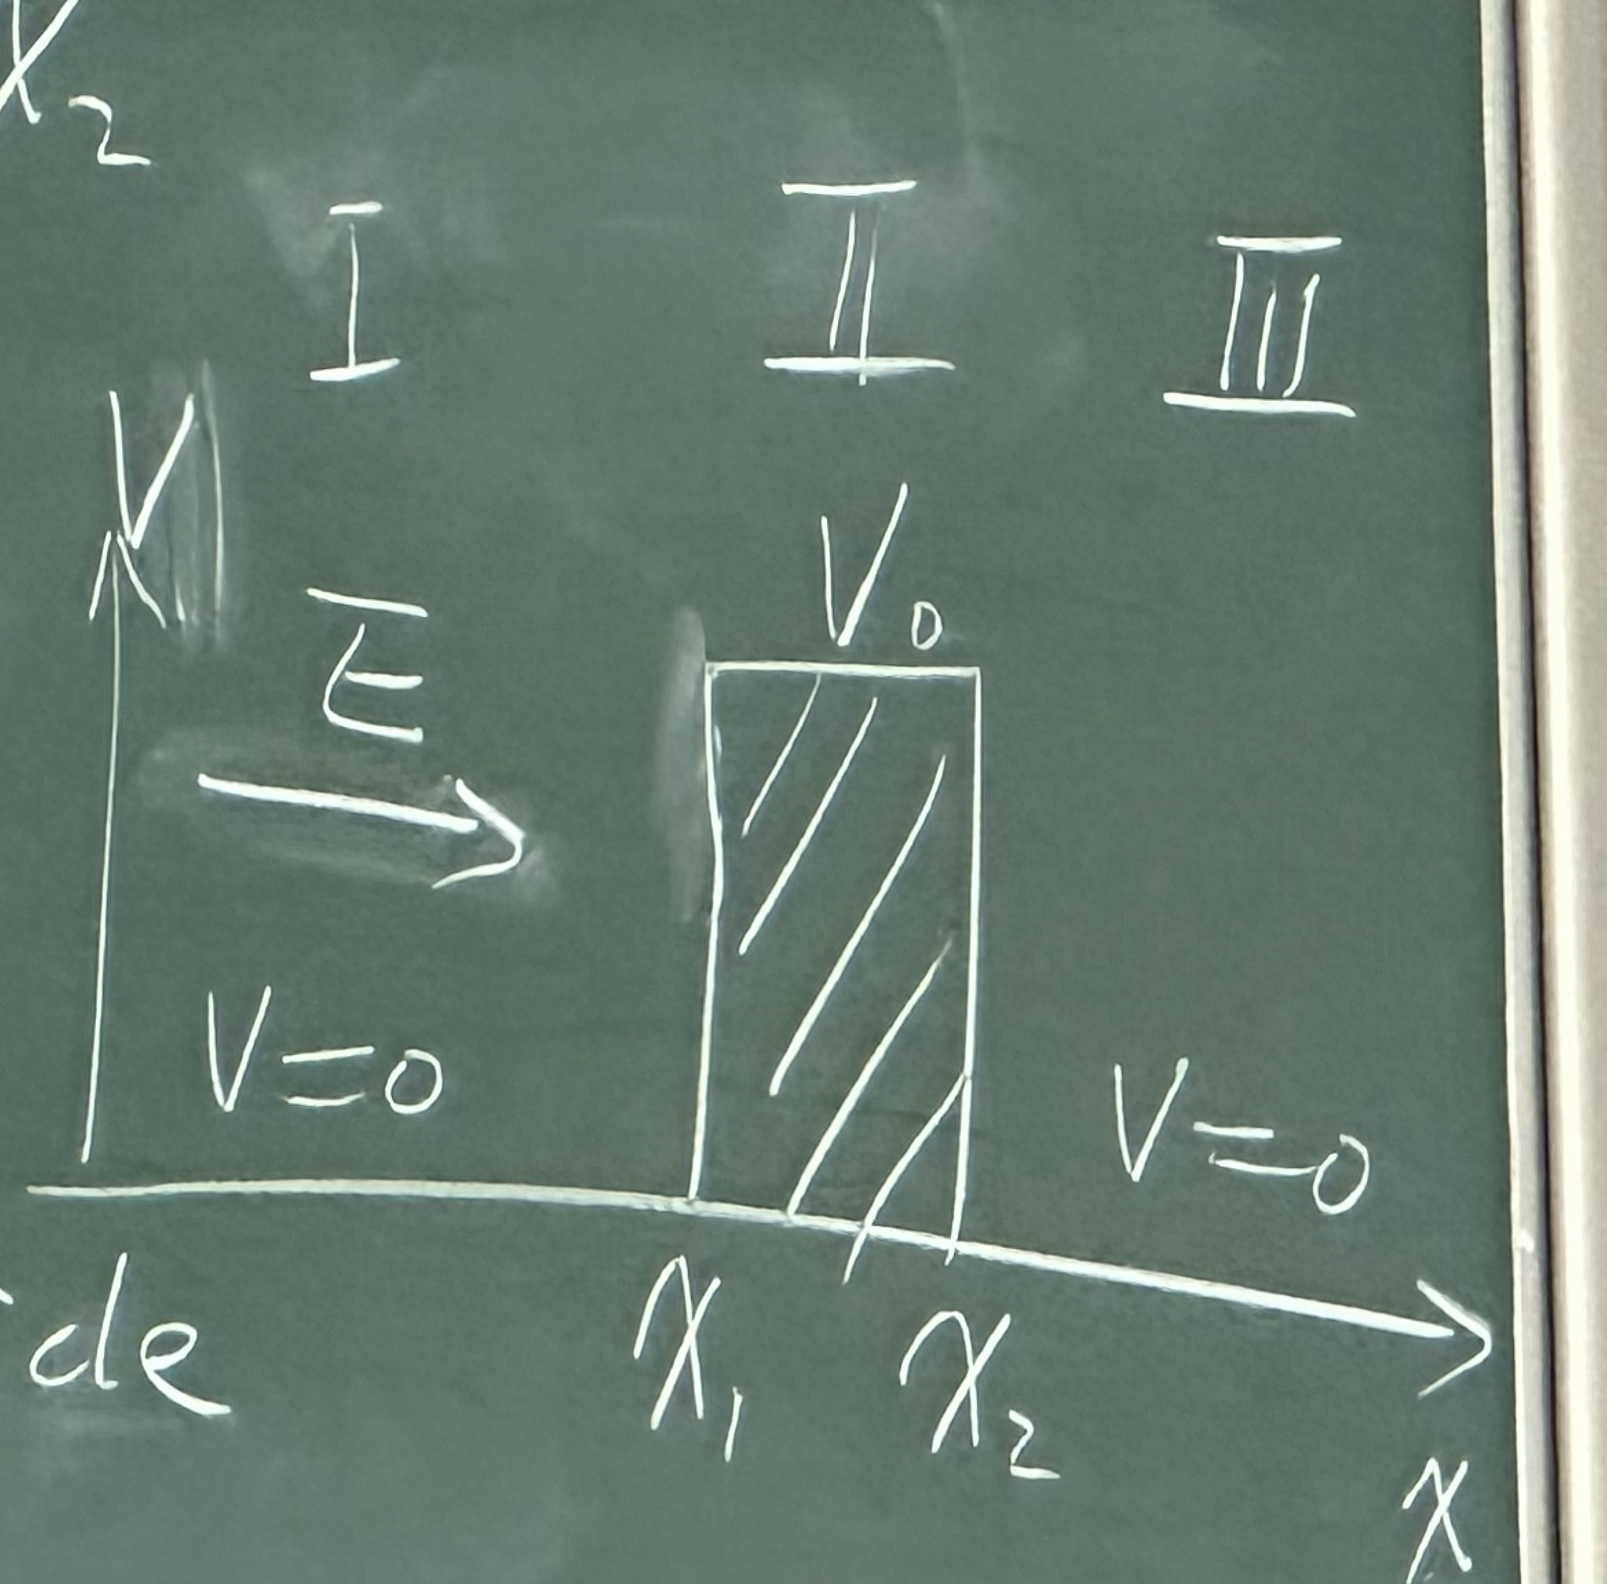 x₂
I II III
V
V₀
E
V=0
V=0
de
x₁ x₂
x